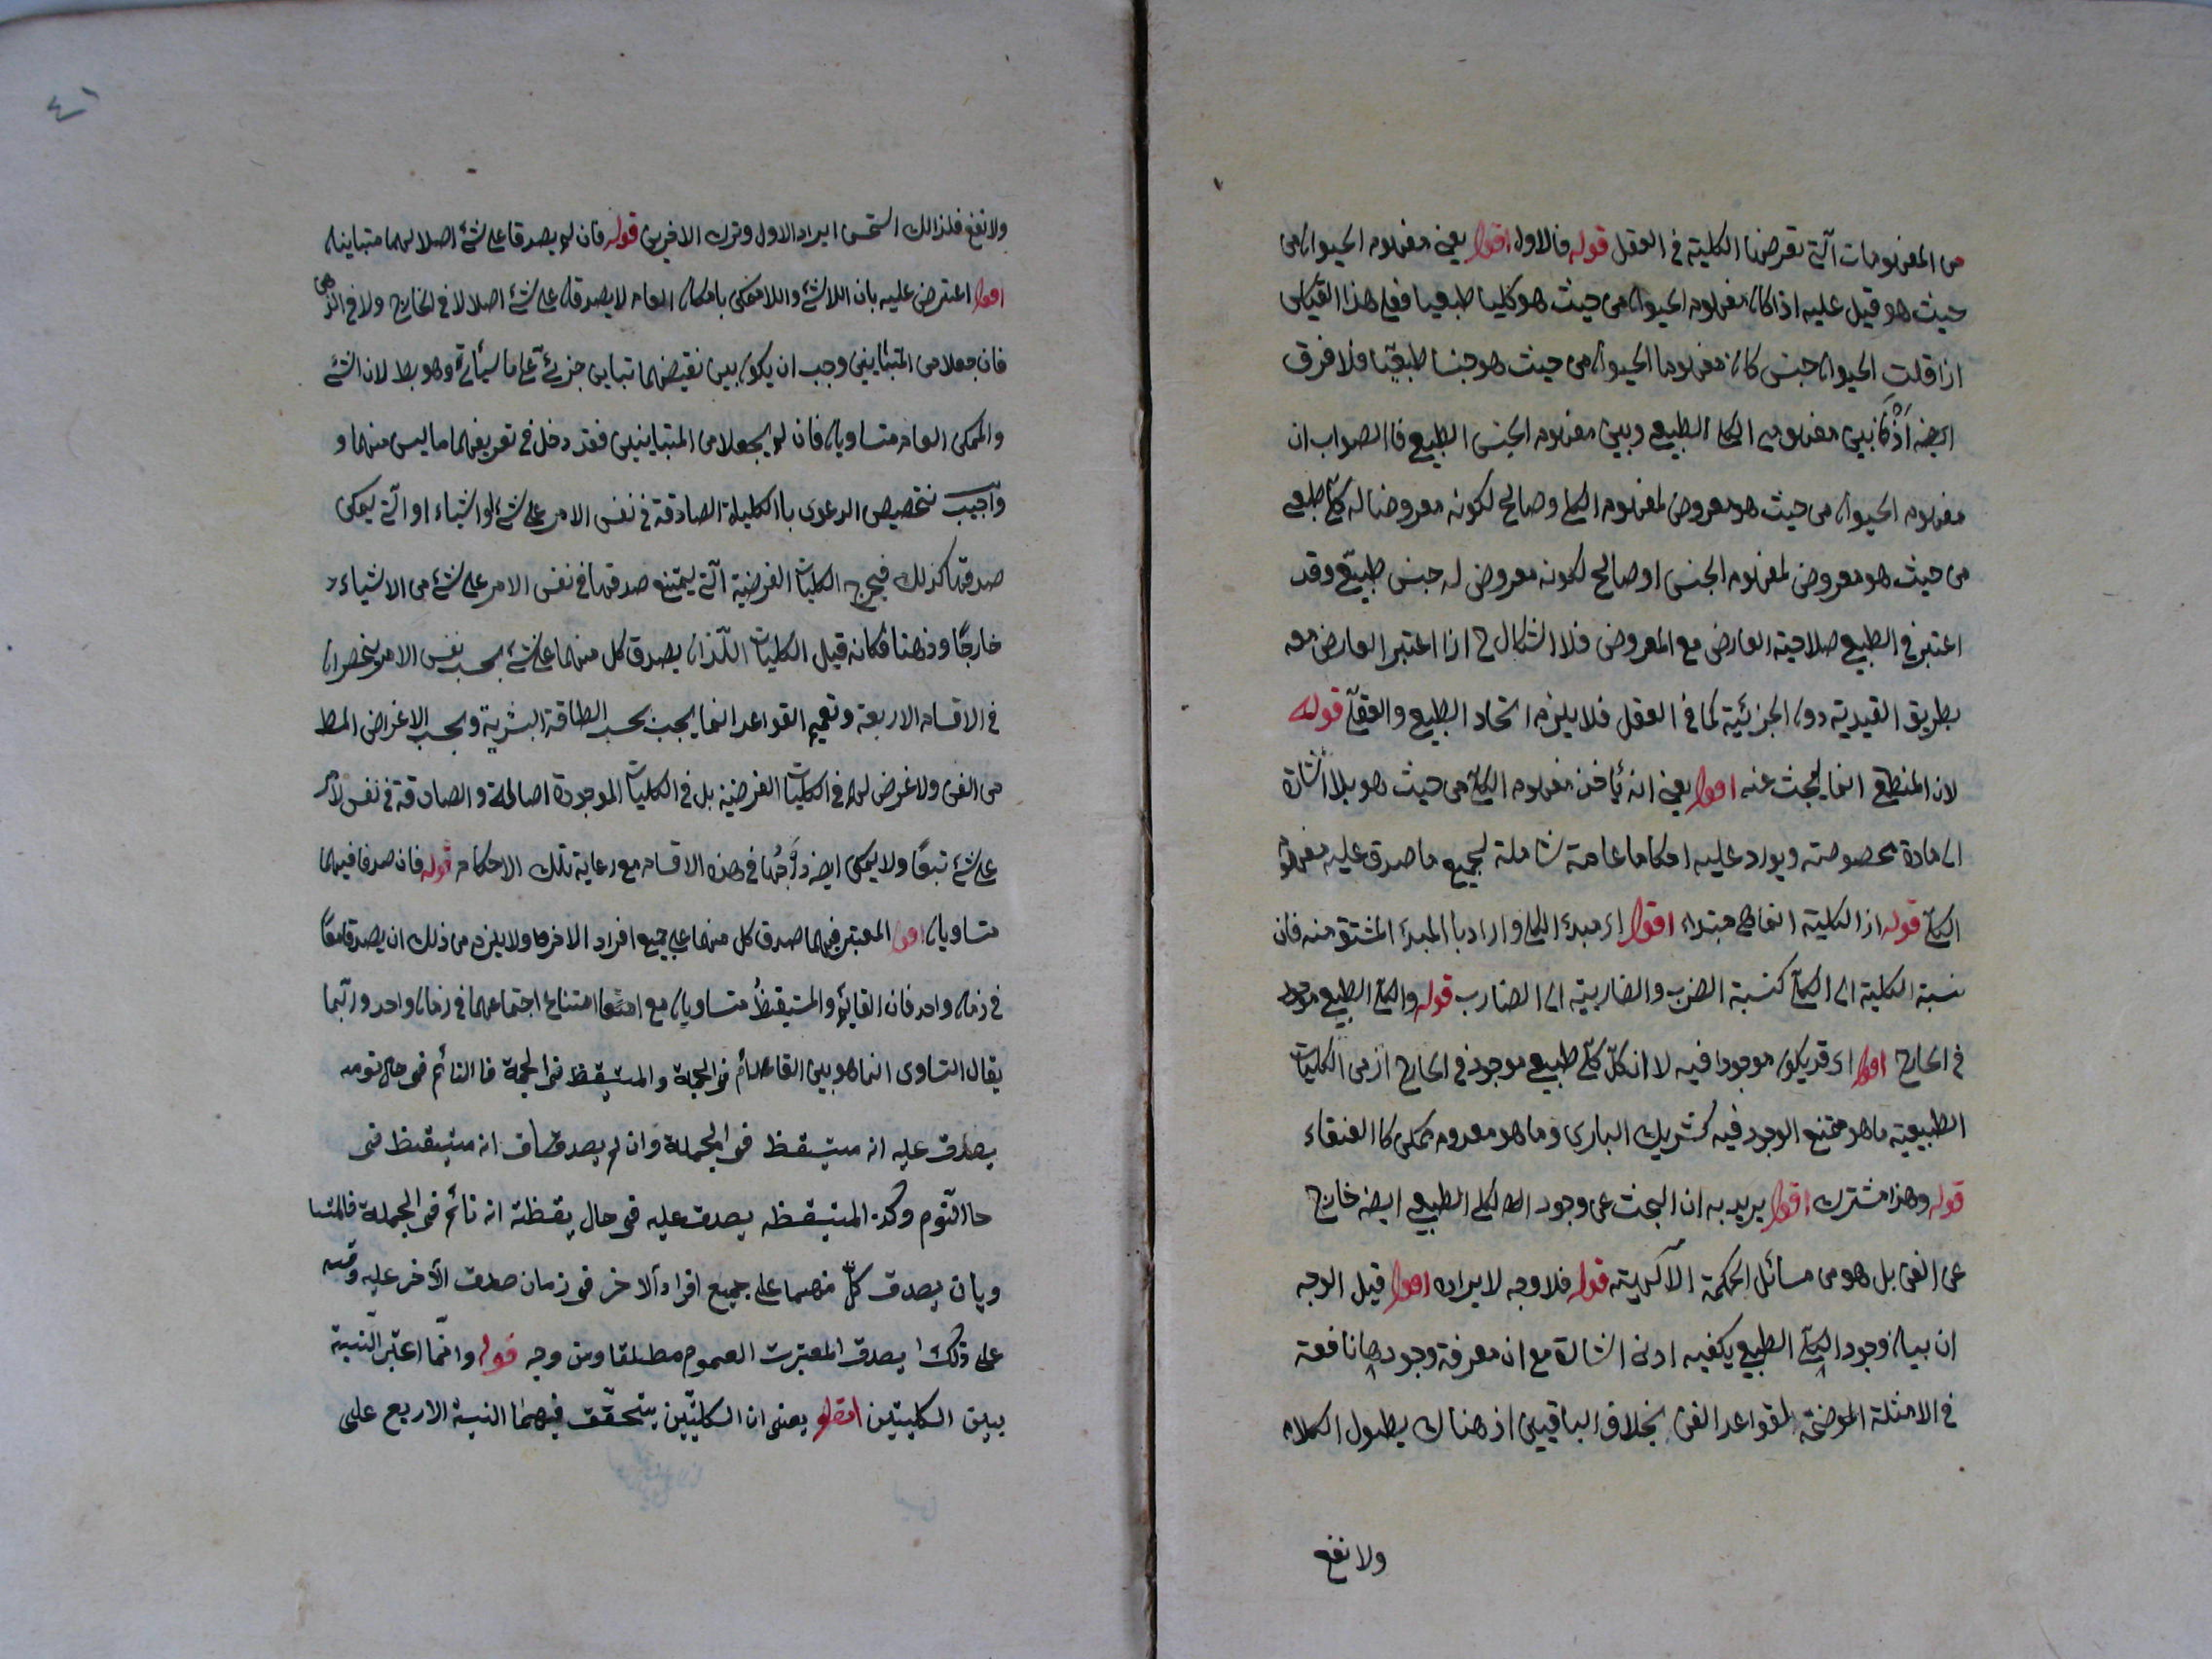 من المفهومات التي تعرضها الكلية في العقل قوله فالاول اقول يعني مفهوم الحيوان من
حيث هو قيل عليه اذا كان مفهوم الحيوان من حيث هو كليا طبعيا فعلى هذا القياس
اذا قلت الحيوان جنس كان مفهوما الحيوان من حيث هو جنسا طبعيا فلا فرق
ايضه اذ كا بين مفهوم الكلى الطبيعي وبين مفهوم الجنس الطبيعي فا الصواب ان
مفهوم الحيوان من حيث هو معروض لمفهوم الكلي وصالح لكونه معروضا له كلي طبعي
من حيث هو معروض لمفهوم الجنس او صالح لكونه معروض له جنس طبيعي وقد
اعتبر في الطبيعي صلاحية العارض مع المعروض فلا اشكال ح اذا اعتبر العارض معه
بطريق القيدية دون الجزئية كما في العقل فلا يلزم اتحاد الطبيعي والعقلي قوله
لان المنطقي انما يبحث عنه اقول يعني انه يأخذ مفهوم الكلي من حيث هو بلا اشارة
الى مادة مخصوصة ويورد عليه احكاما عامة شاملة لجميع ما صدق عليه مفهوم
الكلي قوله اذ الكلية انما هي مبتداء اقول اى مبدء الكلي واراد با المبدء المشتق منه فان
نسبة الكلية الى الكلي كنسبة الضرب والضاربية الى الضارب قوله والكلي الطبيعي موجود
في الخارج اقول اى قد يكون موجودا فيه لا ان كل كلي طبيعي موجود في الخارج اذ من الكليات
الطبيعية ما هو ممتنع الوجود فيه كشريك الباري وما هو معدوم ممكن كا العنقاء
قوله وهذا مشترك اقول يريد به ان البحث عن وجود الكلي الطبيعي ايضه خارج
عن الفن بل هو من مسائل الحكمة الآلهية قوله فلا وجه لايراده اقول قيل الوجه
ان بيان وجود الكلي الطبيعي يكفيه ادنى اشارة مع ان معرفة وجودها نافعة
في الامثلة الموضحة لقواعد الفن بخلاف الباقيين اذ هناك يطول الكلام
ولا نفع
٤١
ولا نفع فلذالك استحسن ايراد الاول وترك الاخرين قوله فان لم يصدقا على شئ اصلا فهما متباينان
اقول اعترض عليه بان اللاشئ واللاممكن بامكان العام لا يصدقان على شئ اصلا لا في الخارج ولا في الذهن
فان جعلا من المتباينين وجب ان يكون بين نقيضهما تباين جزئي على ما سيأتي وهو بط لان الشئ
والممكن العام متساويان فان لم يجعلا من المتباينين فقد دخل في تعريفهما ما ليس منهما و
واجيب بتخصيص الدعوى با الكليات الصادقة في نفس الامر على شئ او اشياء او التي يمكن
صدقها كذلك فيخرج الكليات الفرضية التي يمتنع صدقها في نفس الامر على شئ من الاشياء
خارجًا وذهنا فكانه قيل الكليات اللذان يصدق كل منهما على شئ بحسب نفس الامر ينحصران
في الاقسام الاربعة وتعميم القواعد انما يجب بحسب الطاقة البشرية وبحسب الاغراض المط
من الفن ولا غرض لهم في الكليات الفرضية بل في الكليات الموجودة اصالة والصادقة في نفس الامر
على شئ تبعًا ولا يمكن ايضه درجُها في هذه الاقسام مع رعاية تلك الاحكام قوله فان صدقا فيهما
متساويان اقول المعتبر فيهما صدق كل منهما على جميع افراد الاخر ولا يلزم من ذلك ان يصدقا معًا
في زمان واحد فان النائم والمستيقظ متساويان مع امتناع اجتماعهما في زمان واحد وربما
يقال التساوى انما هو بين النائم في الجملة والمستيقظ في الجملة فا النائم في حال نومه
يصدق عليه انه مستيقظ في الجملة وان لم يصدق انه مستيقظ في
حال النوم وكذ المستيقظ يصدق عليه في حال يقظته انه نائم في الجملة فالمتسا
ويان يصدق كلّ منهما على جميع افراد الاخر في زمان صدق الآخر عليه وقس
على ذلك ا يصدق المعتبرت العموم مطلقا ومن وجه قوله وانّما اعتبر النسبة
بين الكليتين اقول يعني ان الكليّين يتحقّق فيهما النسبة الاربع على